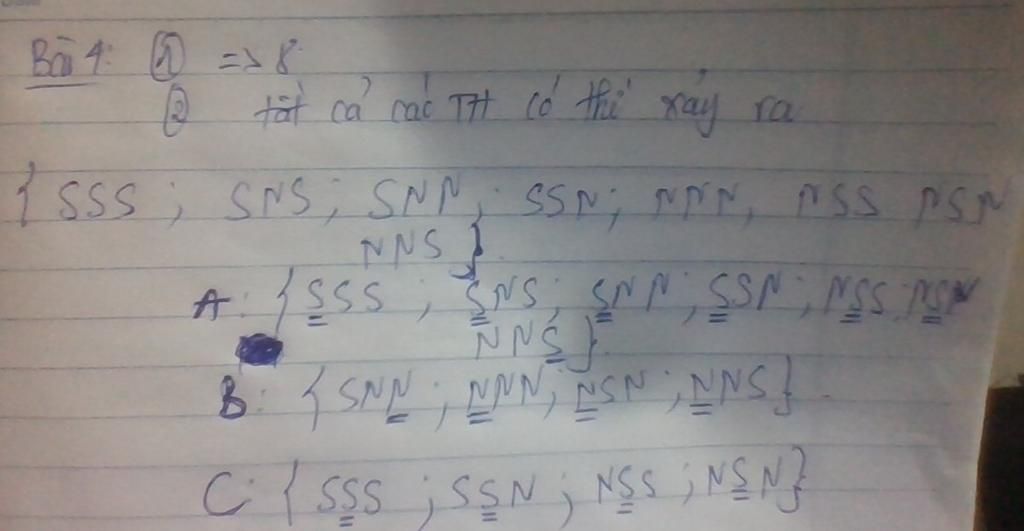 Bài 4: ① => 8
② tất cả các TH có thể xảy ra
{ SSS ; SNS ; SNN ; SSN ; NNN, NSS NSN
NNS }
A: { SSS ; SNS ; SNN ; SSN ; NSS ; NSN
NNS }
B: { SNN ; NNN, NSN ; NNS } .
C: { SSS ; SSN ; NSS ; NSN }